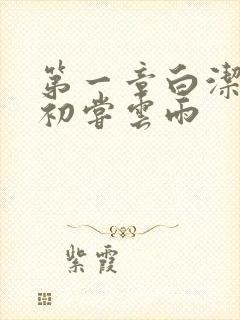 第一章白潔
初嘗雲雨
紫霞